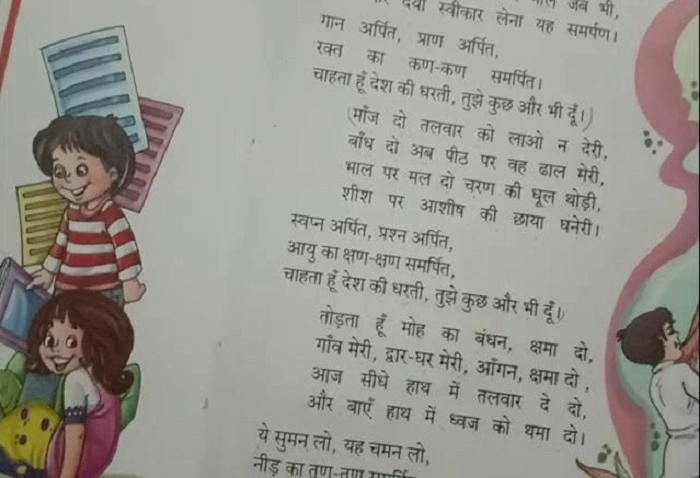 दया स्वीकार लेना यह समर्पण।
गान अर्पित, प्राण अर्पित,
रक्त का कण-कण समर्पित।
चाहता हूँ देश की धरती, तुझे कुछ और भी दूँ।)
(माँज दो तलवार को लाओ न देरी,
बाँध दो अब पीठ पर वह ढाल मेरी,
भाल पर मल दो चरण की धूल थोड़ी,
शीश पर आशीष की छाया घनेरी।
स्वप्न अर्पित, प्रश्न अर्पित,
आयु का क्षण-क्षण समर्पित,
चाहता हूँ देश की धरती, तुझे कुछ और भी दूँ।)
तोड़ता हूँ मोह का बंधन, क्षमा दो,
गाँव मेरी, द्वार-घर मेरी, आँगन, क्षमा दो,
आज सीधे हाथ में तलवार दे दो,
और बाएँ हाथ में ध्वज को थमा दो।
ये सुमन लो, यह चमन लो,
नीड़ का तृण-तृण